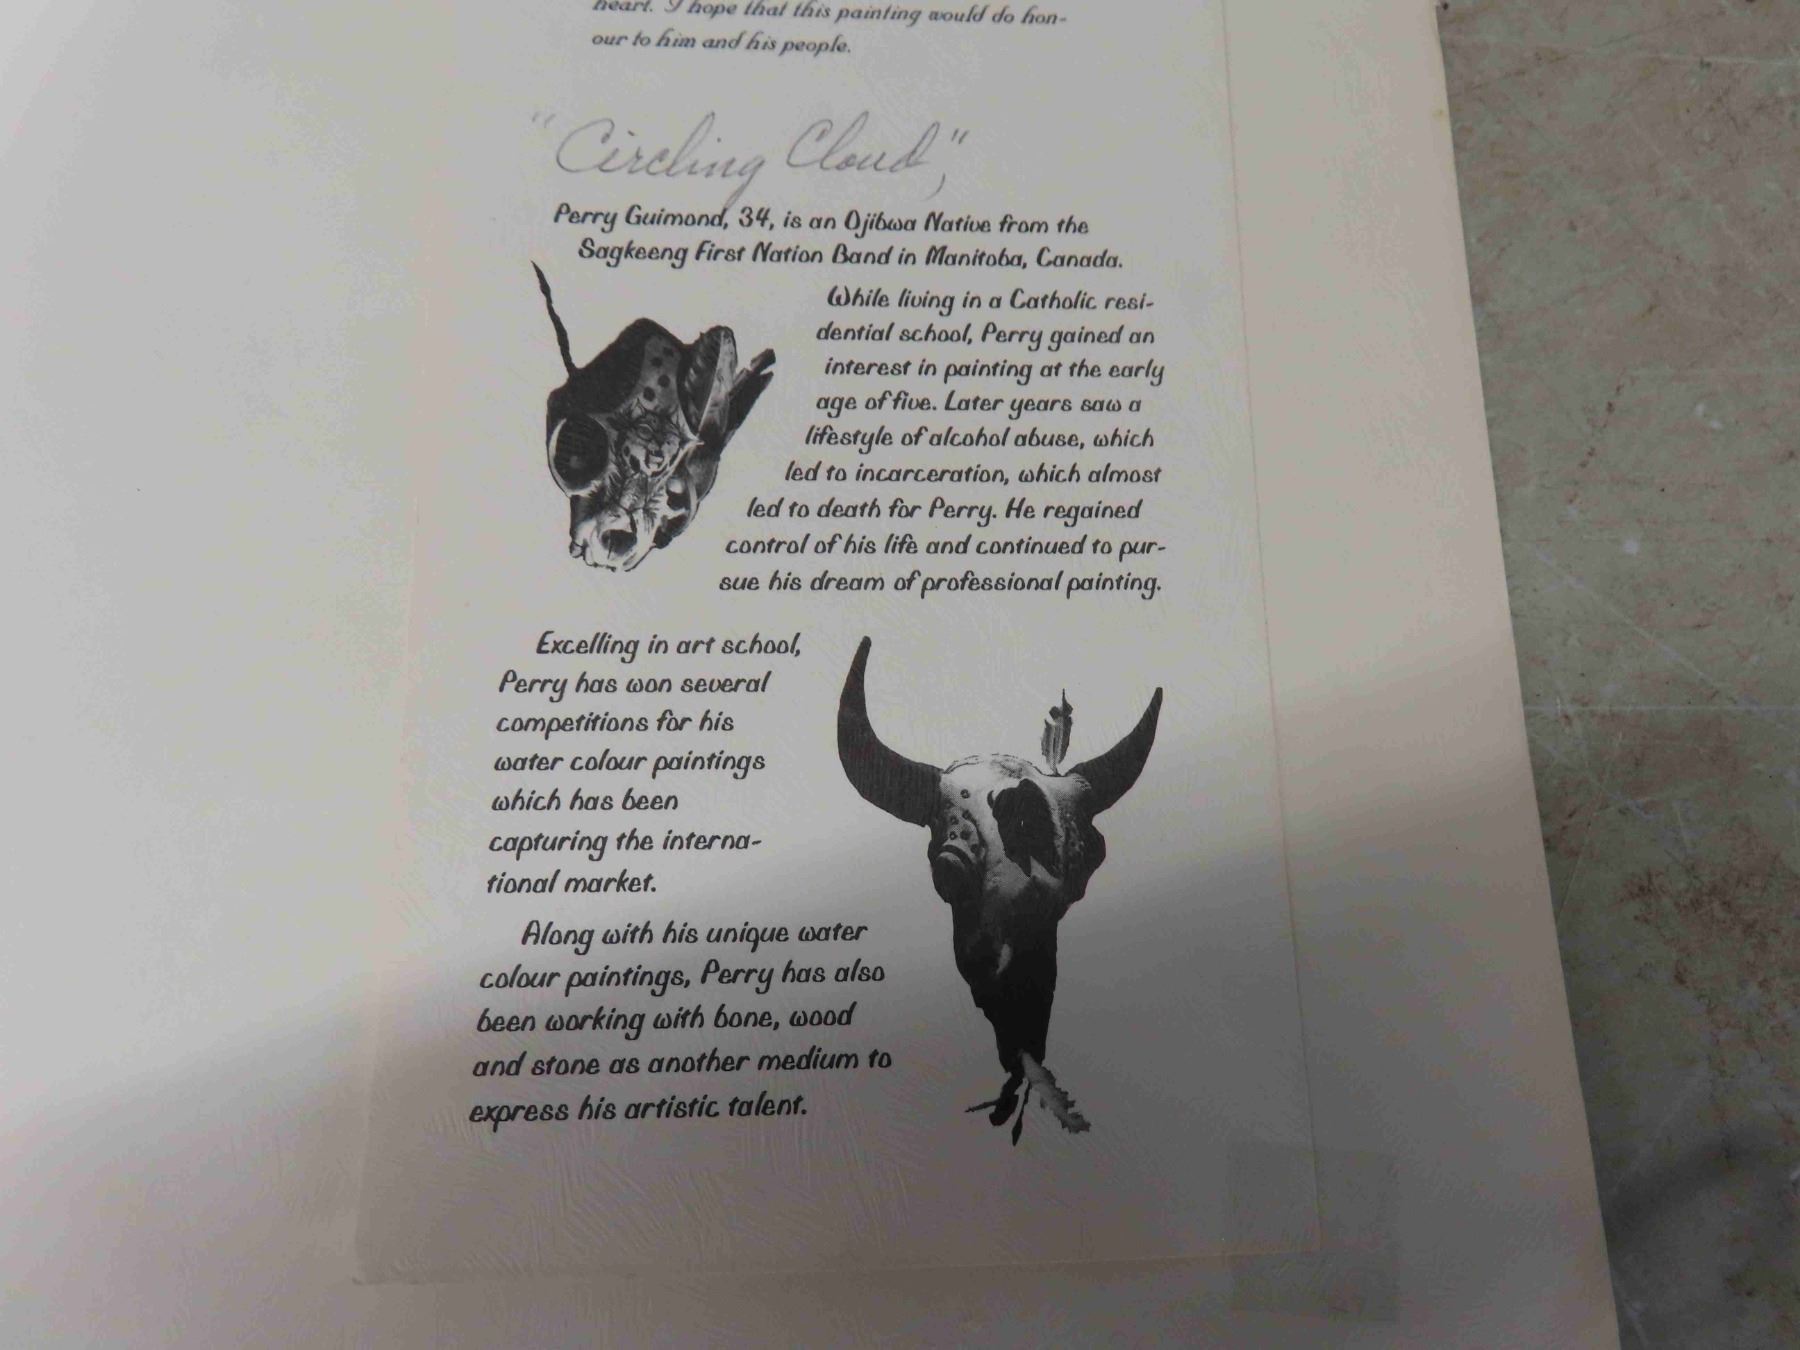 heart. I hope that this painting would do hon-
our to him and his people.
"Circling Cloud",
Perry Guimond, 34, is an Ojibwa Native from the
Sagkeeng First Nation Band in Manitoba, Canada.
While living in a Catholic resi-
dential school, Perry gained an
interest in painting at the early
age of five. Later years saw a
lifestyle of alcohol abuse, which
led to incarceration, which almost
led to death for Perry. He regained
control of his life and continued to pur-
sue his dream of professional painting.
Excelling in art school,
Perry has won several
competitions for his
water colour paintings
which has been
capturing the interna-
tional market.
Along with his unique water
colour paintings, Perry has also
been working with bone, wood
and stone as another medium to
express his artistic talent.